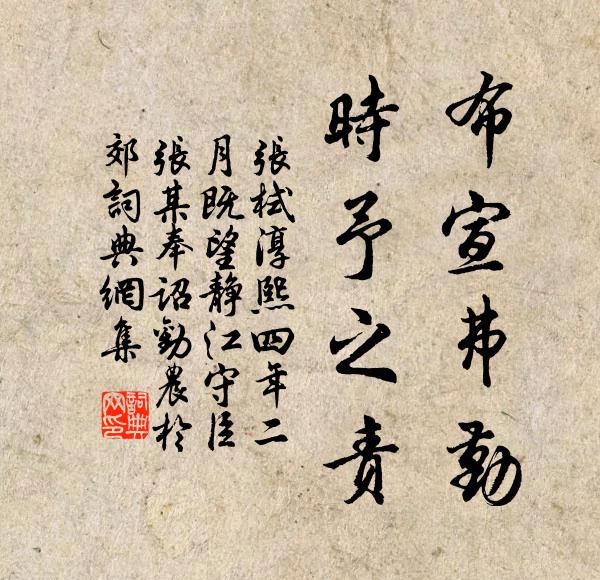 布宣弗勤
時予之責
張栻淳熙四年二
月既望靜江守臣
張某奉詔勸農於
郊詞典網集
詞典
网印